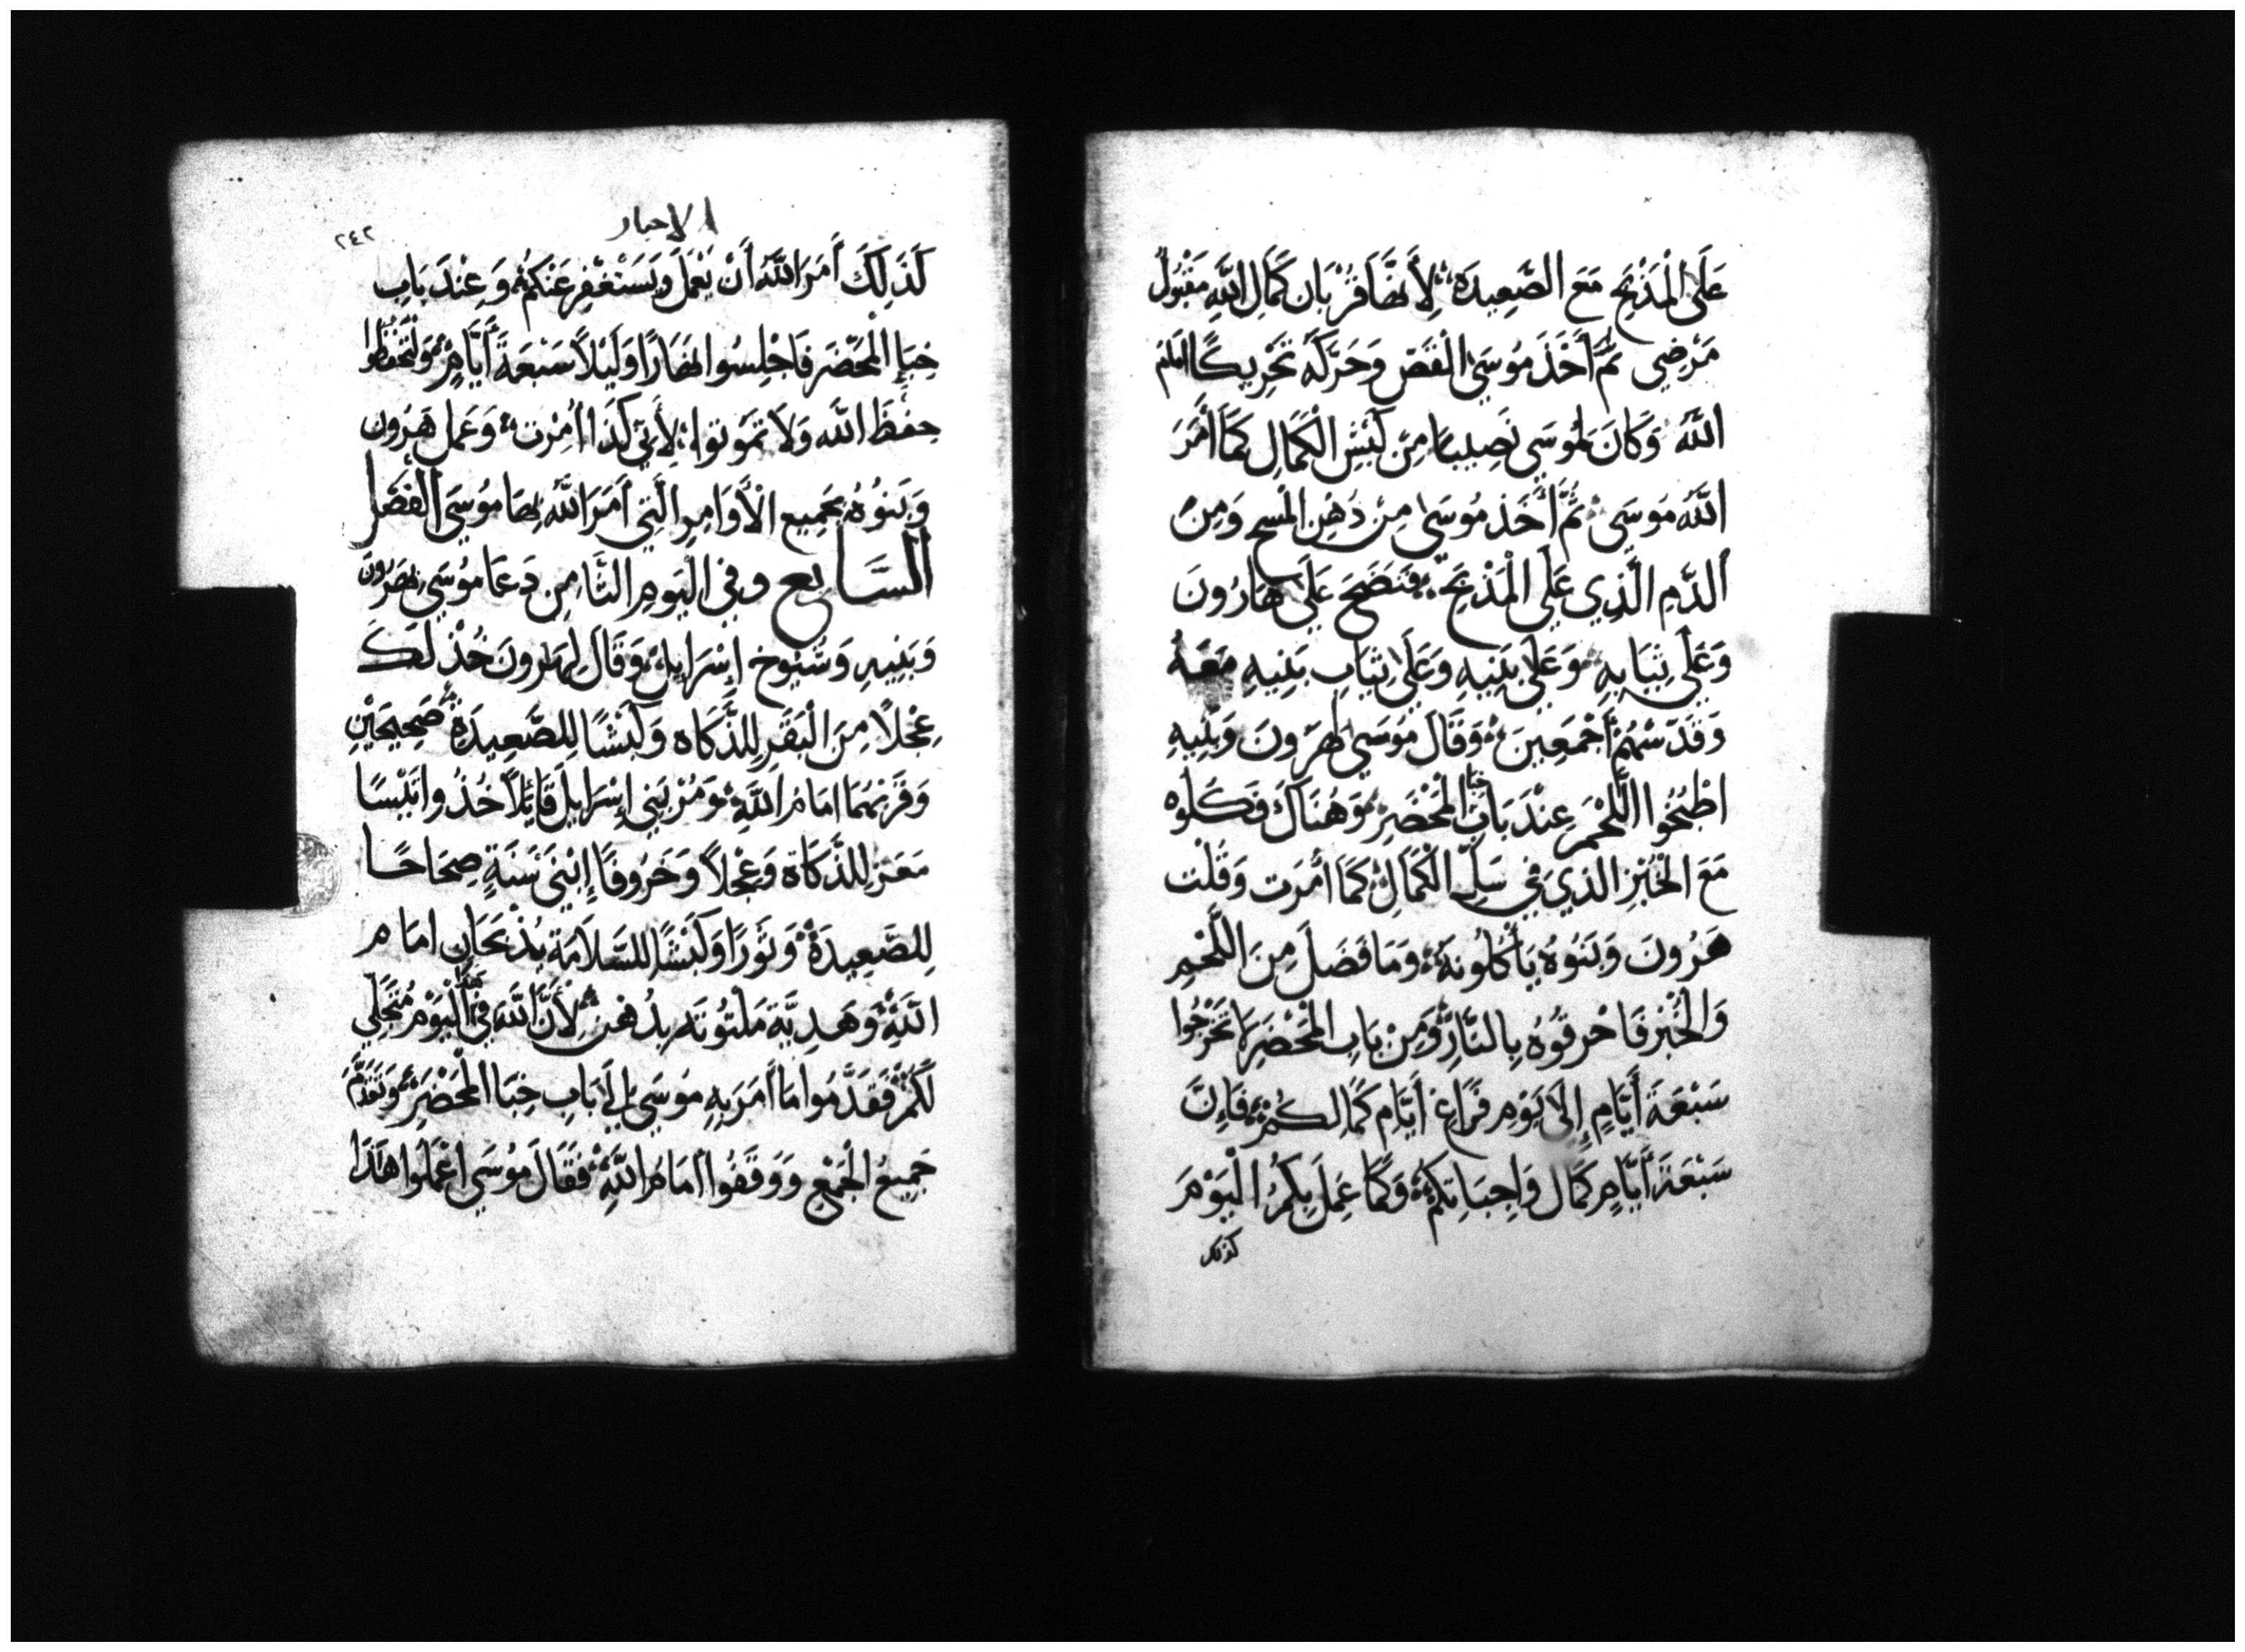 عَلَى الْمَذْبَحِ مَعَ الصَّعِيدَة لِأَنهَا قُرْبَان كَمَالِ اللَّهِ مَقْبُولٌ
مَرْضِي ثُمَّ أَخَذَ مُوسَى الْقَصّ وَحَرَّكَهُ تَحْرِيكًا امَامَ
اللَّه وَكَانَ لمُوسَي نَصِيبًا مِنْ كَبْشِ الْكَمَالِ كَمَا أَمَرَ
اللَّهُ مُوسَى ثُمَّ أَخَذ مُوسَى مِنْ دُهْنِ الْمَسحِ وَمِنَ
الدَّمِ الَّذِي عَلَي الْمَذْبَحِ فَنَضَحَ عَلَى هَارُونَ
وَعَلَي ثِيَابِهِ وَعَلَى بَنِيهِ وَعَلَى ثِيَابِ بَنِيهِ مَعَهُ
وَقَدّسَهُمْ أَجْمَعِينَ وَقَالَ مُوسَي لهَرُونَ وَبَنِيهِ
اطْبُخُوا اللَّحْمَ عِنْدَ بَابِ خبَا الْمَحْضَرِ وَهُنَاكَ فَكُلُوه
مَعَ الْخُبْزِ الذِي فِي سَلِّ الْكَمَالِ كَمَا أمَرَت وَقُلْت
هَرُونَ وَبَنُوهُ يَأْكُلُونَهُ وَمَا فَضَلَ مِنَ اللَّحْمِ
وَالْخُبْزِ فَاحْرِقُوهُ بِالنَّارِ وَمِنْ بَابِ الْمَحْضَرِ لَا تَخْرُجُوا
سَبْعَةَ أَيَّامٍ إِلَى يَوْمِ فَرَاغِ أَيَّام كَمَالكُمْ فَإِنَّ
سَبْعَةَ أَيَّامٍ كَمَال وَاجِبَاتِكُمْ وَكَمَا عَمِلَ بِكُمُ الْيَوْمَ
كذلك
الاحبار
٢٤٢
كَذَلِكَ أَمَرَ اللَّهُ أَنْ يَعْمَلَ وَيَسْتَغْفِرَ عَنْكُمْ وَعِنْدَ بَابِ
خِبَإِ الْمَحْضَرِ فَاجْلِسُوا نهَارًا وَلَيْلاً سَبْعَةَ أَيَّامٍ وَلْتَحْفَظُوا
حِفْظَ اللَّه وَلَا تَمُوتوا لِأَنِّي كَذَا أُمِرْت وَعَمِلَ هَرُون
وَبَنُوهُ بجَمِيعِ الْأَوَامِرِ الَّتِي أَمَرَ اللَّهُ بهَا مُوسَى الفَصْل
السَّابِع وفي الْيَومِ الثَّامِنِ دَعَا مُوسَى بهَرُونَ
وَبَنِيهِ وَشُيُوخ إِسْرَايل وَقَالَ لِهَارونَ خُذْ لَكَ
عِجْلاً مِنَ الْبَقَرِ لِلذَّكَاه وَكَبْشًا لِلصَّعِيدَةِ صَحِيحَيْنِ
وَقَرِّبْهُمَا امَامَ اللَّهِ وَمُرْ بَنِي إِسْرَايِلَ قَائِلاً خُذُوا تَيْسًا
مَعَز لِلذَّكَاة وَعِجْلاً وَخَرُوفًا إِبْنَي سَنَةٍ صِحَاحًا
لِلصَّعِيدَةِ وَثَوْرًا وَكَبْشًا لِلسَّلَامَة يُذْبَحَانِ امَام
اللَّه وَهَدِيَّة مَلْتُوتَه بدُهن لِأَنَّ اللَّهَ فِي هذا الْيَوْم مُتَجَلِّي
لَكُمْ فَقَدَّمُوا مَا أَمَرَ بِهِ مُوسَى إِلَى بَابِ خِبَا الْمَحْضَرِ وَتَقَدَّمَ
جَمِيعُ الْجَمْعِ وَوَقَفُوا أَمَامَ اللَّهِ فَقَالَ مُوسَي اعْمَلُوا هَذَا